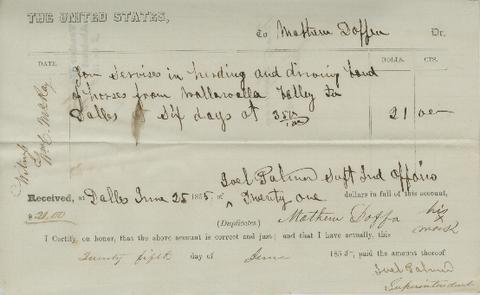 THE UNITED STATES,
To Mathew Doffa Dr.
DATE. DOLLS. CTS.
For Servises in herding and driving band
of horses from Wallawalla Valley to
Dalles six days at 3.50/100 21 00
Witness
Wm C. McKay
Received, at Dalles June 25 1855, of Joel Palmer Supt Ind Affairs
$21.00 Twenty one dollars in full of this account,
(Duplicates.) Mathew Doffa his x mark
I Certify on honor, that the above account is correct and just; and that I have actually, this
twenty fifth day of June 1855, paid the amount thereof
Joel Palmer
Superintendent